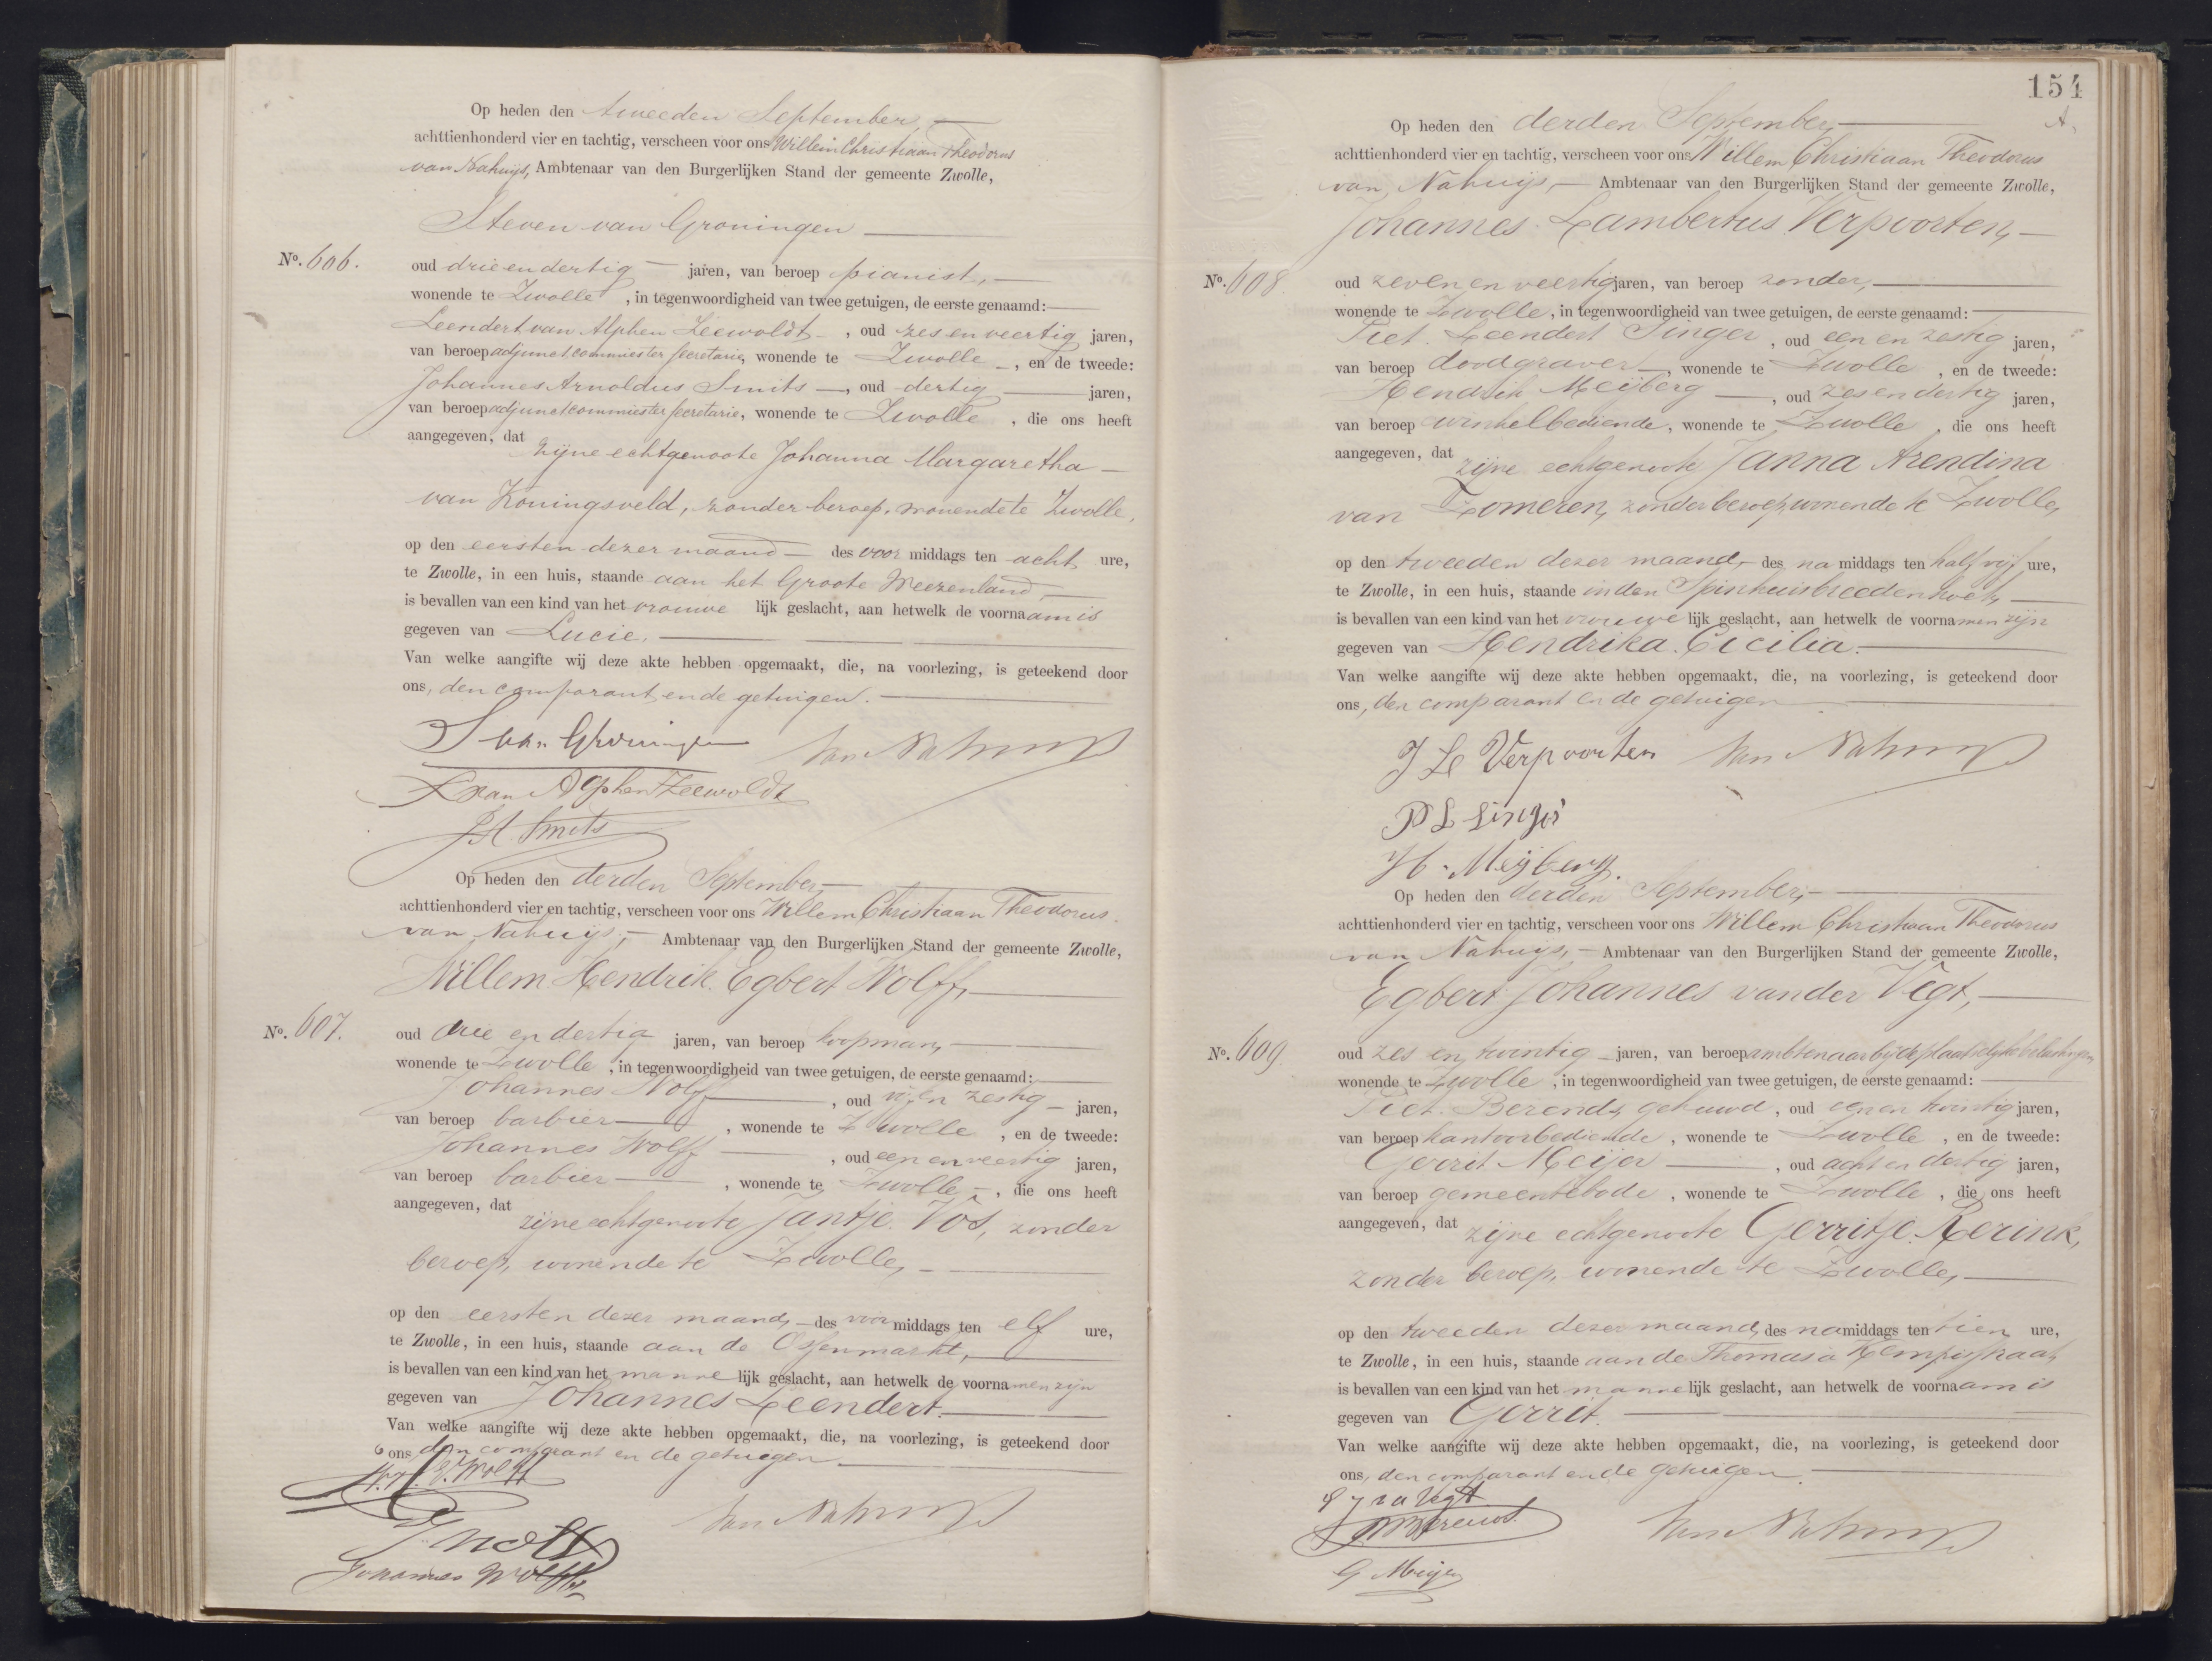 Op heden den tweeden September,
achttienhonderd vier en tachtig, verscheen voor ons Willem Christiaan Theodorus
van Nahuijs, Ambtenaar van den Burgerlijken Stand der gemeente Zwolle,
Steven van Groningen
No. 606.
oud drie en dertig jaren, van beroep pianist,
wonende te Zwolle, in tegenwoordigheid van twee getuigen, de eerste genaamd:
Leendert van Alphen Zeewoldt, oud zes en veertig jaren,
van beroep adjunctcommiester secretarie, wonende te Zwolle, en de tweede:
Johannes Arnoldus Smits, oud dertig jaren,
van beroep adjunctcommiester secretarie, wonende te Zwolle, die ons heeft
aangegeven, dat zijne echtgenoote Johanna Margaretha
van Koningsveld, zonder beroep, wonende te Zwolle,
op den eersten dezer maand des voor middags ten acht ure,
te Zwolle, in een huis, staande aan het Groote Weezenland,
is bevallen van een kind van het vrouwe lijk geslacht, aan hetwelk de voornaam is
gegeven van Lucie.
Van welke aangifte wij deze akte hebben opgemaakt, die, na voorlezing, is geteekend door
ons, den comparant en de getuigen.
S van Groningen van Nahuijs
L van Alphen Zeewoldt
J A Smits
Op heden den derden September,
achttienhonderd vier en tachtig, verscheen voor ons Willem Christiaan Theodorus
van Nahuijs, Ambtenaar van den Burgerlijken Stand der gemeente Zwolle,
Willem Hendrik Egbert Wolff,
No. 607.
oud drie en dertig jaren, van beroep koopman,
wonende te Zwolle, in tegenwoordigheid van twee getuigen, de eerste genaamd:
Johannes Wolff, oud zestig jaren,
van beroep barbier, wonende te Zwolle, en de tweede:
Johannes Wolff, oud een en veertig jaren,
van beroep barbier, wonende te Zwolle, die ons heeft
aangegeven, dat zijne echtgenoote Jantje Vos, zonder
beroep, wonende te Zwolle,
op den eersten dezer maand, des voor middags ten elf ure,
te Zwolle, in een huis, staande aan de Ossenmarkt,
is bevallen van een kind van het manne lijk geslacht, aan hetwelk de voornamen zijn
gegeven van Johannes Leendert.
Van welke aangifte wij deze akte hebben opgemaakt, die, na voorlezing, is geteekend door
ons den comparant en de getuigen
W. H. E. Wolff
van Nahuijs
J Wolff
Johannes Wolff
154
A.
Op heden den derden September,
achttienhonderd vier en tachtig, verscheen voor ons Willem Christiaan Theodorus
van Nahuijs, Ambtenaar van den Burgerlijken Stand der gemeente Zwolle,
Johannes Lambertus Verpoorten,
No. 608.
oud zeven en veertig jaren, van beroep zonder,
wonende te Zwolle, in tegenwoordigheid van twee getuigen, de eerste genaamd:
Piet Leendert Singer, oud een en zestig jaren,
van beroep doodgraver, wonende te Zwolle, en de tweede:
Hendrik Meijberg, oud zes en dertig jaren,
van beroep winkelbediende, wonende te Zwolle, die ons heeft
aangegeven, dat zijne echtgenoote Janna Arendina
van Zomeren, zonder beroep, wonende te Zwolle,
op den tweeden dezer maand, des na middags ten half vijf ure,
te Zwolle, in een huis, staande in den Spinhuisbreedenhoek,
is bevallen van een kind van het vrouwe lijk geslacht, aan hetwelk de voornamen zijn
gegeven van Hendrika Cicilia.
Van welke aangifte wij deze akte hebben opgemaakt, die, na voorlezing, is geteekend door
ons, den comparant en de getuigen
J L Verpoorten van Nahuijs
P L Singer
H. Meijberg.
Op heden den derden September,
achttienhonderd vier en tachtig, verscheen voor ons Willem Christiaan Theodorus
van Nahuijs, Ambtenaar van den Burgerlijken Stand der gemeente Zwolle,
Egbert Johannes van der Vegt,
No. 609.
oud zes en twintig jaren, van beroep ambtenaar bij de plaatselijke belastingen,
wonende te Zwolle, in tegenwoordigheid van twee getuigen, de eerste genaamd:
Piet Berends, gehuwd, oud een en twintig jaren,
van beroep kantoorbediende, wonende te Zwolle, en de tweede:
Gerrit Meijer, oud acht en dertig jaren,
van beroep gemeentebode, wonende te Zwolle, die ons heeft
aangegeven, dat zijne echtgenoote Gerritje Rerink,
zonder beroep, wonende te Zwolle,
op den tweeden dezer maand, des namiddags ten tien ure,
te Zwolle, in een huis, staande aan de Thomas a Kempisstraat,
is bevallen van een kind van het manne lijk geslacht, aan hetwelk de voornaam is
gegeven van Gerrit.
Van welke aangifte wij deze akte hebben opgemaakt, die, na voorlezing, is geteekend door
ons, den comparant en de getuigen.
E J v d Vegt
Berends
van Nahuijs
G Meijer